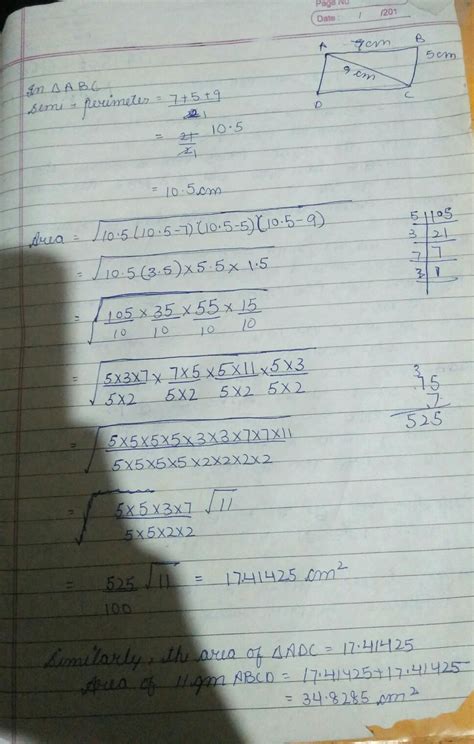 Page No
Date : / /201
A 7cm B
9 cm 5cm
D C
In △ABC
Semi - perimeter = 7+5+9
21
= 21 10.5
21
= 10.5 cm
Area = √10.5(10.5-7)(10.5-5)(10.5-9)
= √10.5(3.5)×5.5×1.5
= √105/10 × 35/10 × 55/10 × 15/10
= √5×3×7/5×2 × 7×5/5×2 × 5×11/5×2 × 5×3/5×2
= √5×5×5×5×3×3×7×7×11/5×5×5×5×2×2×2×2
= √5×5×3×7/5×5×2×2 √11
= 525/100 √11 = 17.41425 cm²
Similarly, the area of △ADC = 17.41425
Area of llgm ABCD = 17.41425+17.41425
= 34.8285 cm²
5 105
3 21
7 7
1
3
75
7
525